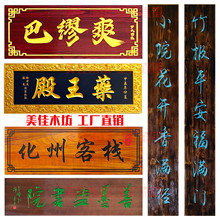 巴缪爽
藥王殿
美佳木坊 工厂直销
化州客栈
書院
竹报平安福满门
小院花开香满径